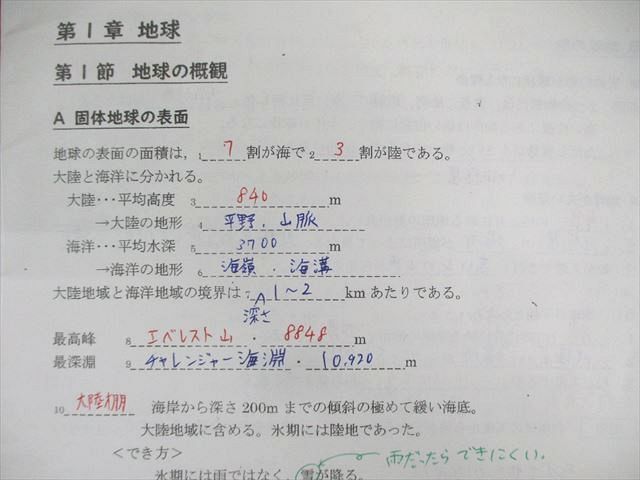 第1章 地球
第1節 地球の概観
A 固体地球の表面
地球の表面の面積は，1 7 割が海で 2 3 割が陸である。
大陸と海洋に分かれる。
大陸･･･平均高度 3 840 m
→大陸の地形 4 平野．山脈
海洋･･･平均水深 5 3700 m
→海洋の地形 6 海嶺．海溝
大陸地域と海洋地域の境界は 7 1～2 km あたりである。
深さ
最高峰 8 エベレスト山．8848 m
最深淵 9 チャレンジャー海淵．10,920 m
10 大陸棚 海岸から深さ 200m までの傾斜の極めて緩い海底。
大陸地域に含める。氷期には陸地であった。
＜でき方＞ 雨だったらできにくい．
氷期には雨ではなく，雪が降る。